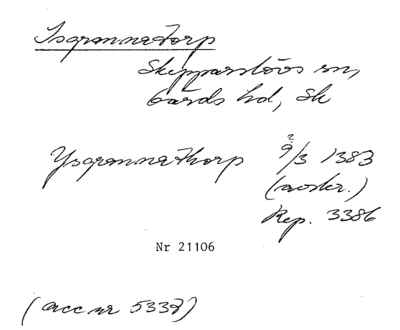 Isgrannatorp
Skepparslövs sn,
Gärds hd, Sk
Ysgrannathorp 9/3 1383
?
(avskr.)
Rep. 3386
Nr 21106
(acc nr 5338)